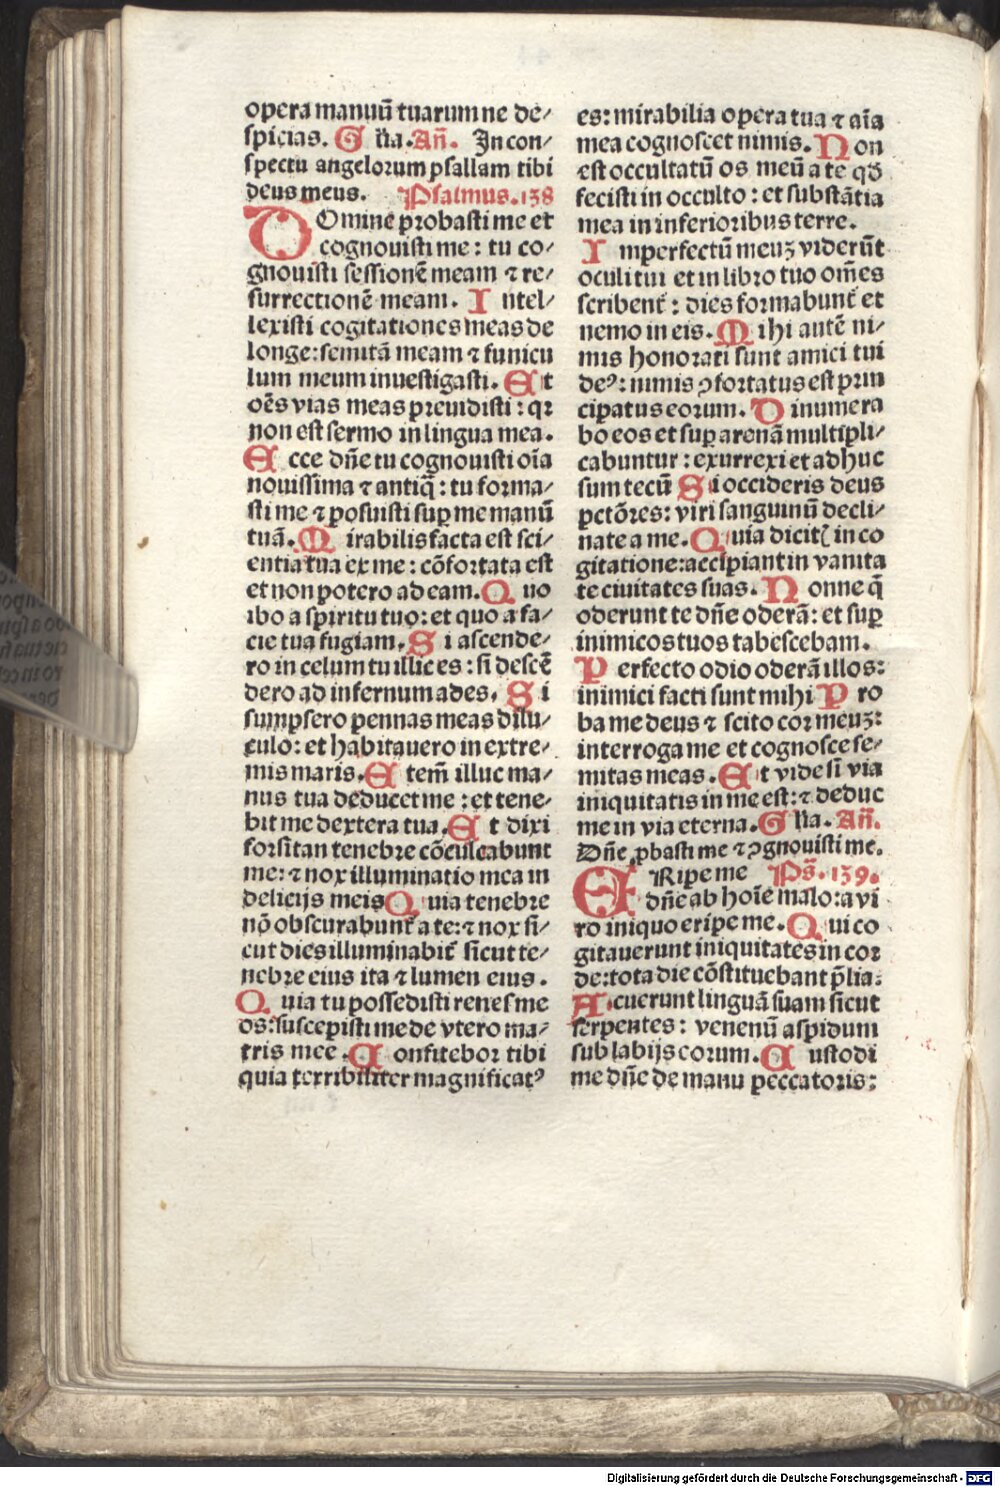 opera manuū tuarum ne de⸗
spicias. Gl'ia. Añ. In con⸗
spectu angelorum psallam tibi
deus meus. Psalmus. 138
DOmine probasti me et
cognouisti me: tu co⸗
gnouisti sessionē meam ⁊ re⸗
surrectionē meam. Intel⸗
lexisti cogitationes meas de
longe: semitā meam ⁊ funicu
lum meum inuestigasti. Et
oēs vias meas preuidisti: qꝛ
non est sermo in lingua mea.
Ecce dñe tu cognouisti oīa
nouissima ⁊ antiq̄: tu forma⸗
sti me ⁊ posuisti suꝑ me manū
tuā. Mirabilis facta est sci⸗
entia tua ex me: cōfortata est
et non potero ad eam. Quo
ibo a spiritu tuo: et quo a fa⸗
cie tua fugiam. Si ascende⸗
ro in celum tu illic es: si descē
dero ad infernum ades. Si
sumpsero pennas meas dilu⸗
culo: et habitauero in extre⸗
mis maris. Etem̄ illuc ma⸗
nus tua deducet me: et tene⸗
bit me dextera tua. Et dixi
forsitan tenebre cōculcabunt
me: ⁊ nox illuminatio mea in
delicijs meis Quia tenebre
nō obscurabunt᷑ a te: ⁊ nox si⸗
cut dies illuminabit᷑ sicut te⸗
nebre eius ita ⁊ lumen eius.
Quia tu possedisti renes me
os: suscepisti me de vtero ma⸗
tris mee. Confitebor tibi
quia terribiliter magnificatꝰ
es: mirabilia opera tua ⁊ aīa
mea cognoscet nimis. Non
est occultatū os meū a te qđ
fecisti in occulto: et substātia
mea in inferioribus terre.
Imperfectū meuꝫ viderūt
oculi tui et in libro tuo om̄es
scribent᷑: dies formabunt᷑ et
nemo in eis. Mihi autē ni⸗
mis honorati sunt amici tui
deꝰ: nimis ꝯfortatus est prin
cipatus eorum. Dinumera
bo eos et suꝑ arenā multipli⸗
cabuntur: exurrexi et adhuc
sum tecū Si occideris deus
pctōres: viri sanguinū decli⸗
nate a me. Quia dicit᷑ in co
gitatione: accipiant in vanita
te ciuitates suas. Nonne q̄
oderunt te dñe oderā: et suꝑ
inimicos tuos tabescebam.
Perfecto odio oderā illos:
inimici facti sunt mihi Pro
ba me deus ⁊ scito cor meuꝫ:
interroga me et cognosce se⸗
mitas meas. Et vide si via
iniquitatis in me est: ⁊ deduc
me in via eterna. Gl'ia. Añ.
Dñe ꝓbasti me ⁊ ꝯgnouisti me.
ERipe me Ps̄. 139.
dñe ab hoīe malo: a vi
ro iniquo eripe me. Qui co
gitauerunt iniquitates in cor
de: tota die cōstituebant p̄lia:
Acuerunt linguā suam sicut
serpentes: venenū aspidum
sub labijs eorum. Custodi
me dñe de manu peccatoris:
Digitalisierung gefördert durch die Deutsche Forschungsgemeinschaft - DFG